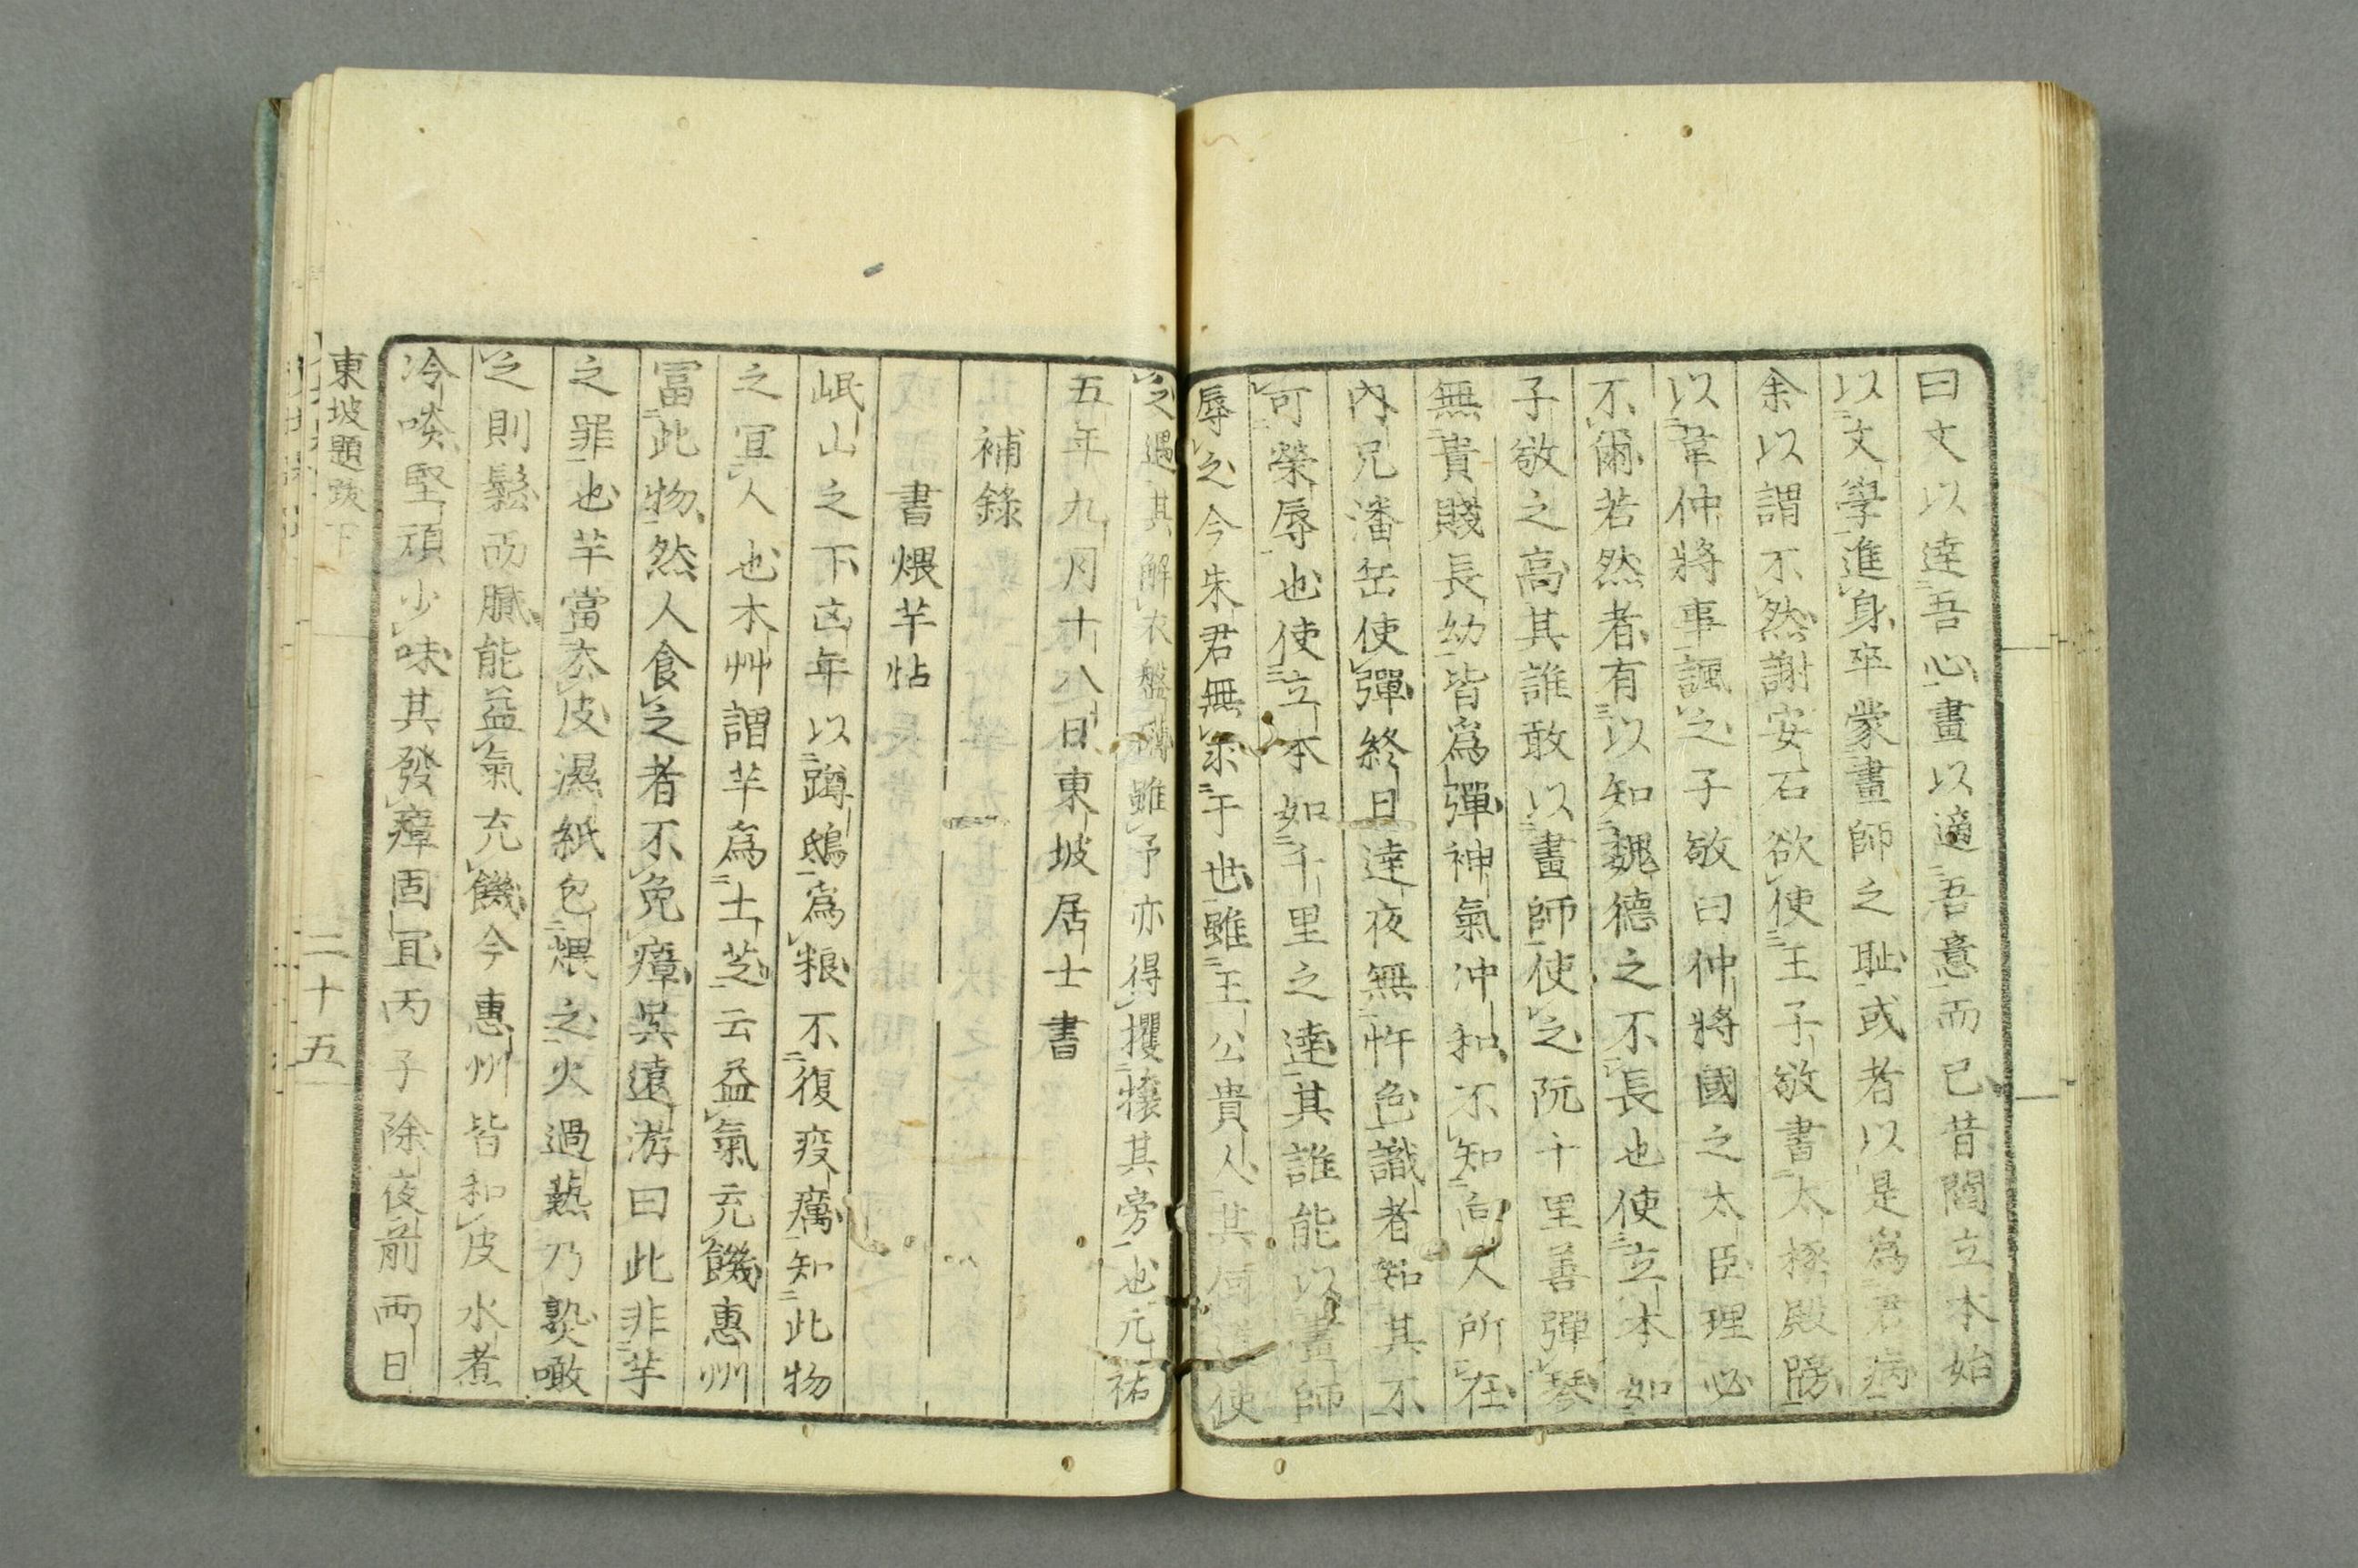 曰文以達吾心畫以適吾意而已昔閻立本始
以文學進身卒蒙畫師之恥或者以是爲君病
余以謂不然謝安石欲使王子敬書太極殿牓
以韋仲將事諷之子敬曰仲將國之大臣理必
不爾若然者有以知魏德之不長也使立本如
子敬之高其誰敢以畫師使之阮千里善彈琴
無貴賤長幼皆爲彈神氣沖和不知向人所在
內兄潘岳使彈終日達夜無忤色識者知其不
可榮辱也使立本如千里之達其誰能以畫師
辱之今朱君無求于世雖王公貴人其何道使
之遇其解衣盤礴雖予亦得攫攘其旁也元祐
五年九月十八日東坡居士書
補錄
書煨芋帖
岷山之下凶年以蹲鴟爲粮不復疫癘知此物
之宜人也本艸謂芋爲土芝云益氣充饑惠州
冨此物然人食之者不免瘴吳遠游曰此非芋
之罪也芋當去皮濕紙包煨之火過熱乃熟噉
之則鬆而膩能益氣充饑今惠州皆和皮水煮
冷啖堅頑少味其發瘴固宜丙子除夜前兩日
東坡題跋下
二十五